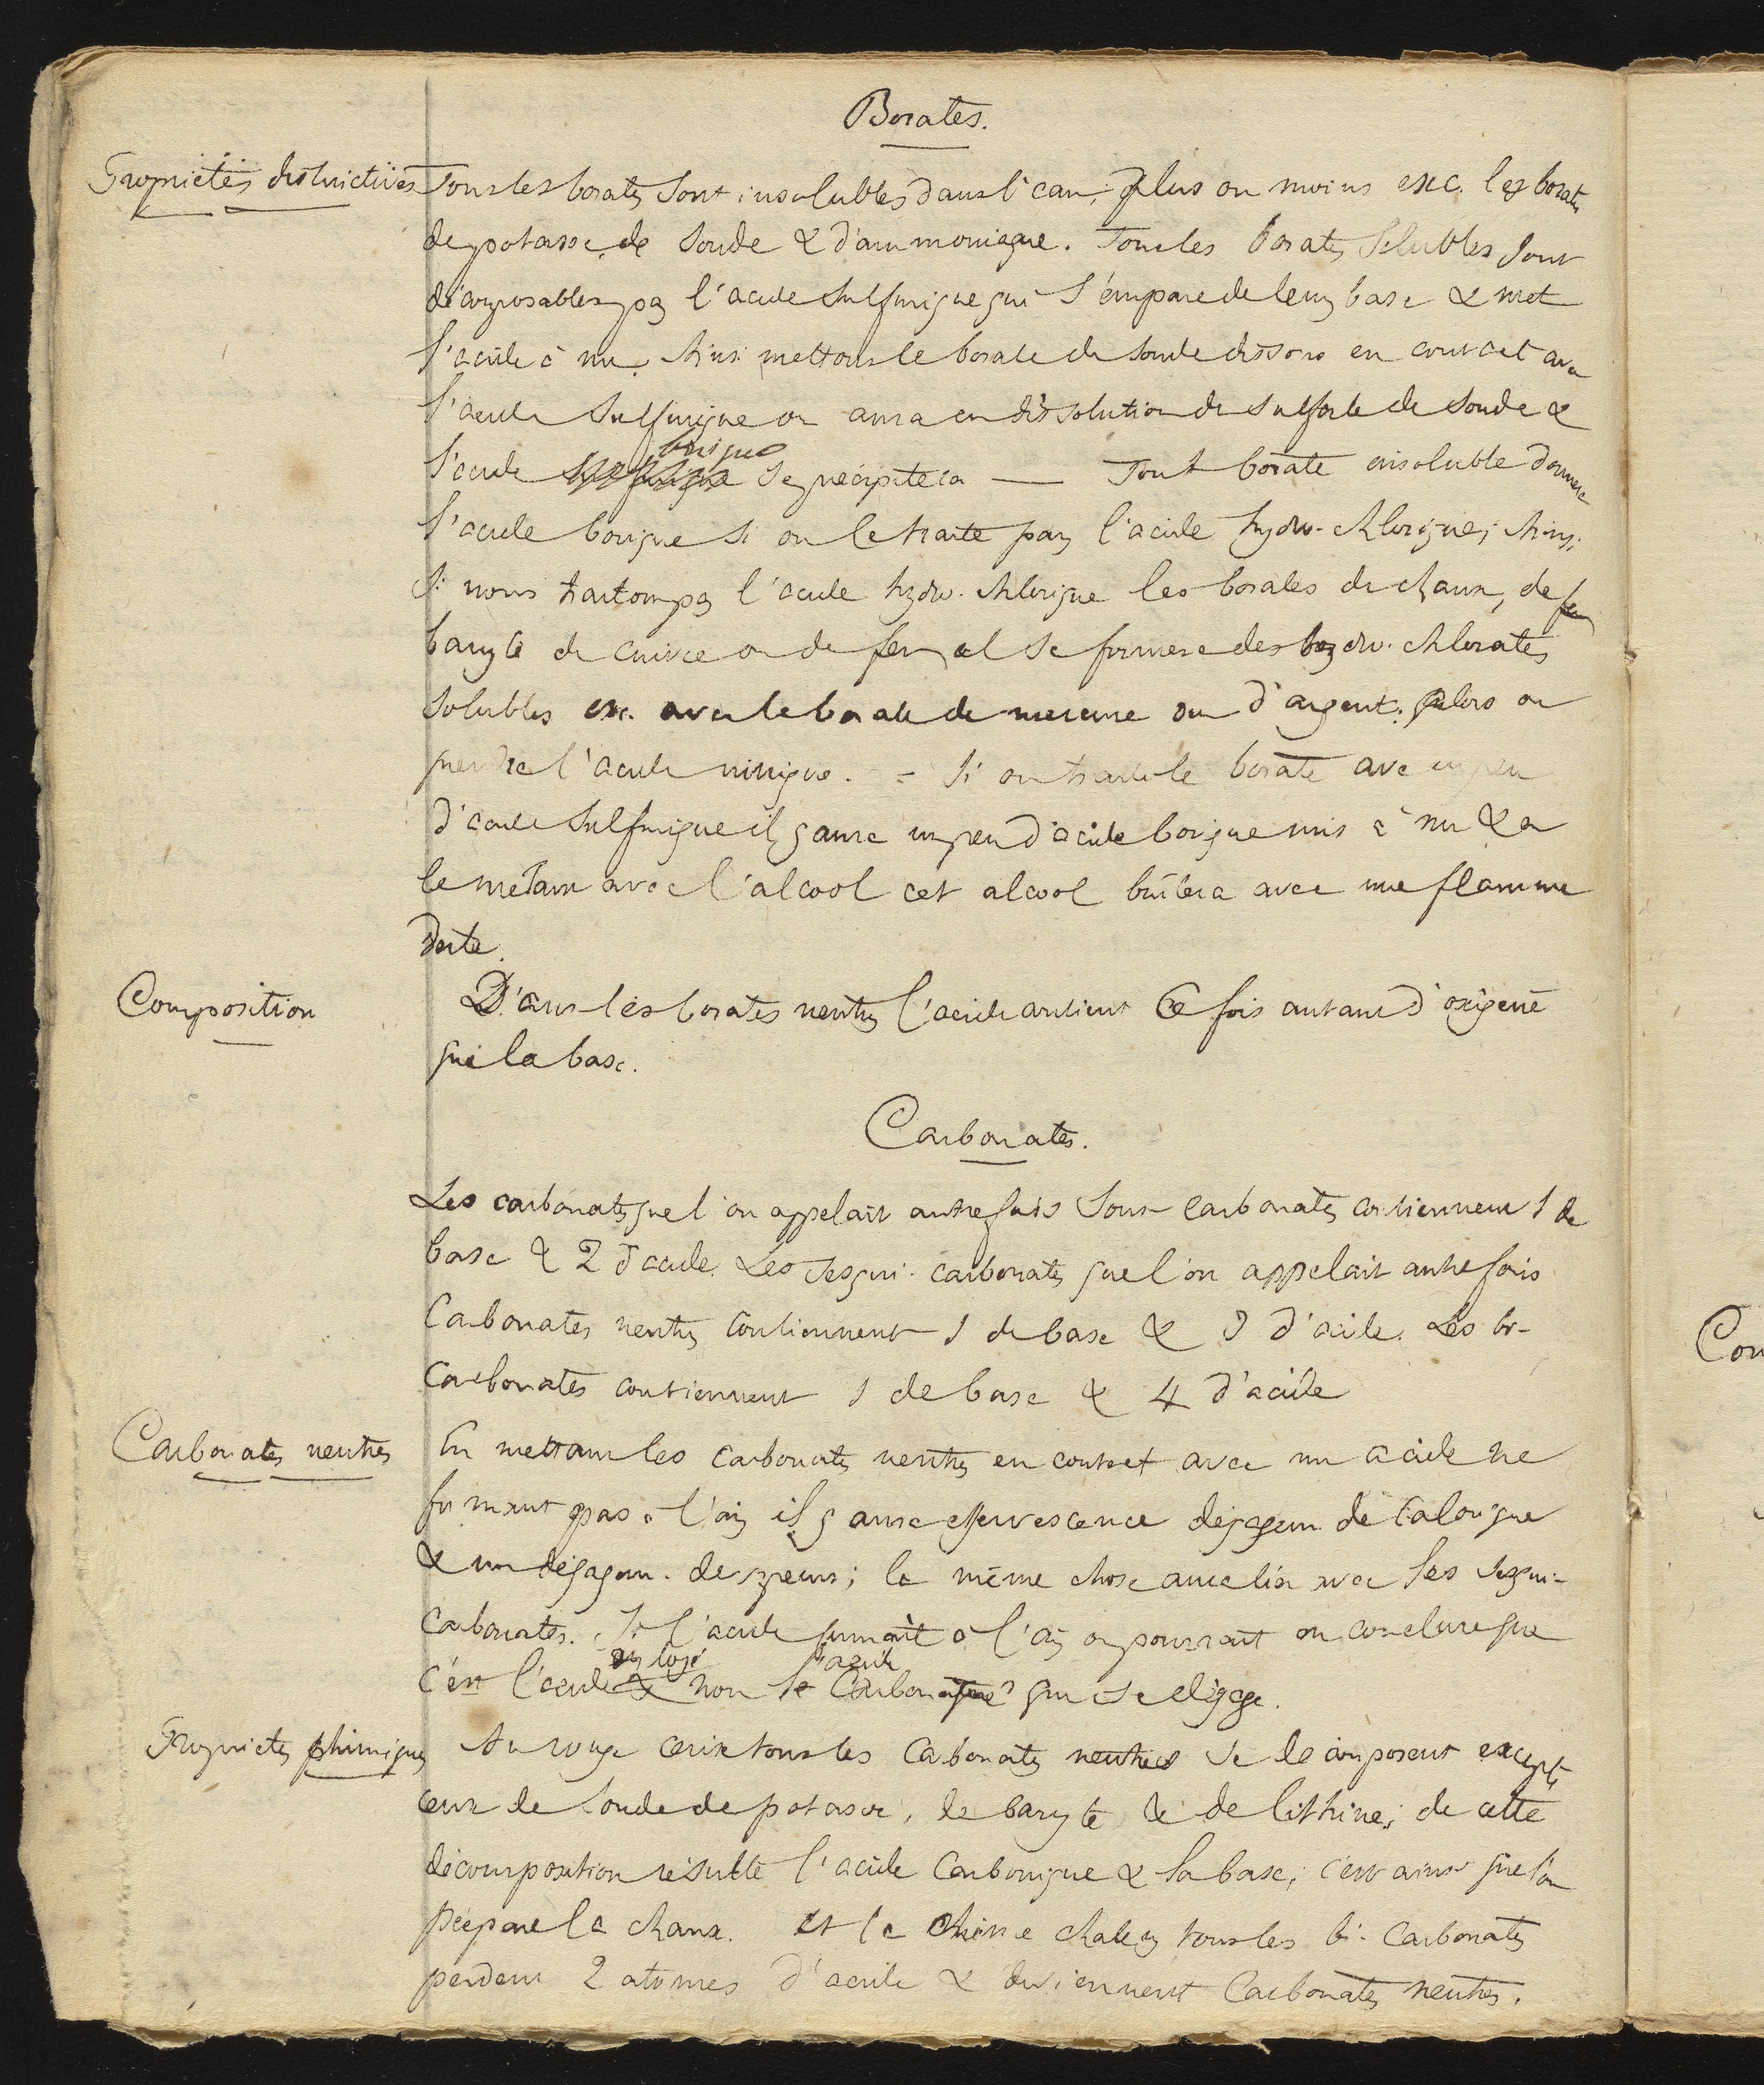 Borates.
Propriétés distinctives Tous les borates sont insolubles dans l'eau, plus ou moins exc. les borates
de potasse, de soude & d'ammoniaque. Tous les borates solubles sont
décomposables par l'acide sulfurique qui s'empare de leurs base & met
l'acide à nu. Ainsi mettons le borate de soude dissous en contact avec
l'acide sulfurique on aura en dissolution du sulfate de soude &
borique
l'acide se précipitera — Tout borate insoluble donnera
l'acide borique si on le traite par l'acide hydro-chlorique; Ainsi
si nous traitons par l'acide hydro-chlorique les borates de chaux, de
baryte de cuivre ou de fer il se formera des hydro-chlorates
solubles exc. avec le borate de mercure ou d'argent; alors on
prendra l'acide nitrique. = Si on traite le borate avec un peu
d'acide sulfurique il y aura un peu d'acide borique mis à nu & en
le mêlant avec l'alcool cet alcool brûlera avec une flamme
verte.
Composition Dans les borates neutres l'acide contient 6 fois autant d'oxigène
que la base.
Carbonates.
Les carbonates que l'on appelait autrefois sous-carbonates contiennent 1 de
base & 2 d'acide. Les sesqui-carbonates que l'on appelait autrefois
Carbonates neutres contiennent 1 de base & 3 d'acide. Les bi-
carbonates contiennent 1 de base & 4 d'acide
Carbonates neutres En mettant les carbonates neutres en contact avec un acide ne
fumant pas à l'air il y aura effervescence dégagem. de calorique
& un dégagem. de vapeurs; la même chose aura lieu avec les sesqui-
carbonates. Si l'acide fumait à l'air on pourrait en conclure que
employé l'acide
c'est l'acide & non le Carbonique qui se dégage.
Propriétés chimiques Au rouge cerise tous les Carbonates neutres se décomposent excepté
ceux de soude de potasse, de baryte & de lithine; de cette
décomposition résulte l'acide Carbonique & la base; c'est ainsi que l'on
prépare la chaux. Et la même chaleur tous les bi-Carbonates
perdent 2 atomes d'acide & deviennent Carbonates neutres.
Con